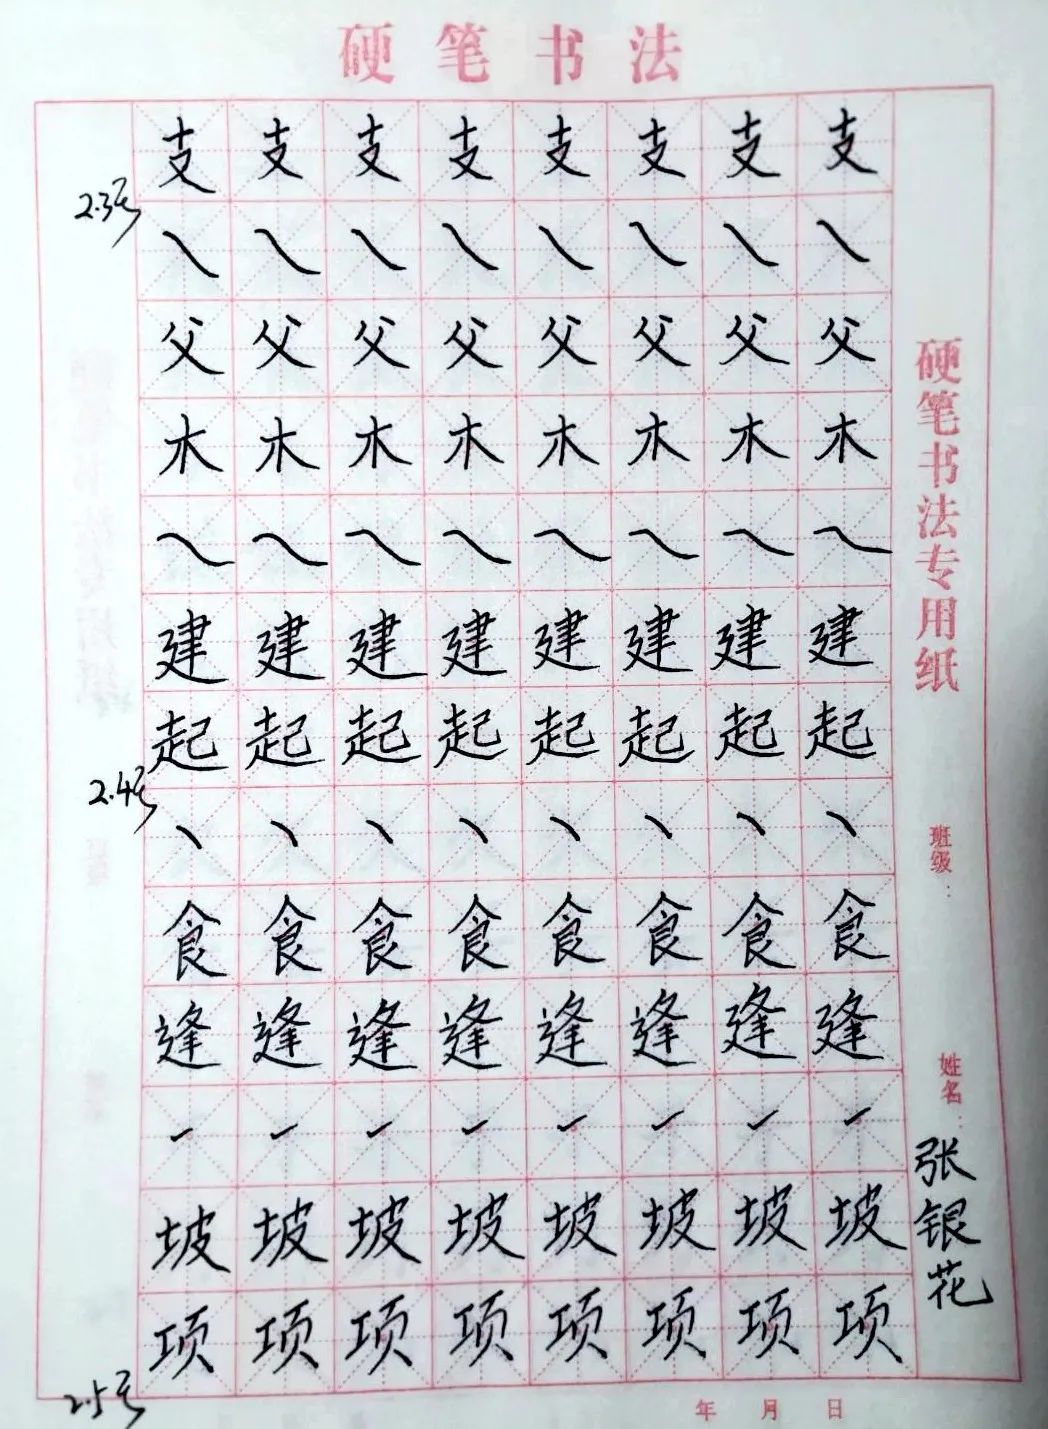 硬笔书法
支支支支支支支支
2.3号
㇏㇏㇏㇏㇏㇏㇏㇏
父父父父父父父父
木木木木木木木木
㇏㇏㇏㇏㇏㇏㇏㇏
建建建建建建建建
起起起起起起起起
2.4号
丶丶丶丶丶丶丶丶
食食食食食食食食
逢逢逢逢逢逢逢逢
㇀㇀㇀㇀㇀㇀㇀㇀
坡坡坡坡坡坡坡坡
项项项项项项项项
2.5号
硬笔书法专用纸
班级：
姓名：张银花
年 月 日